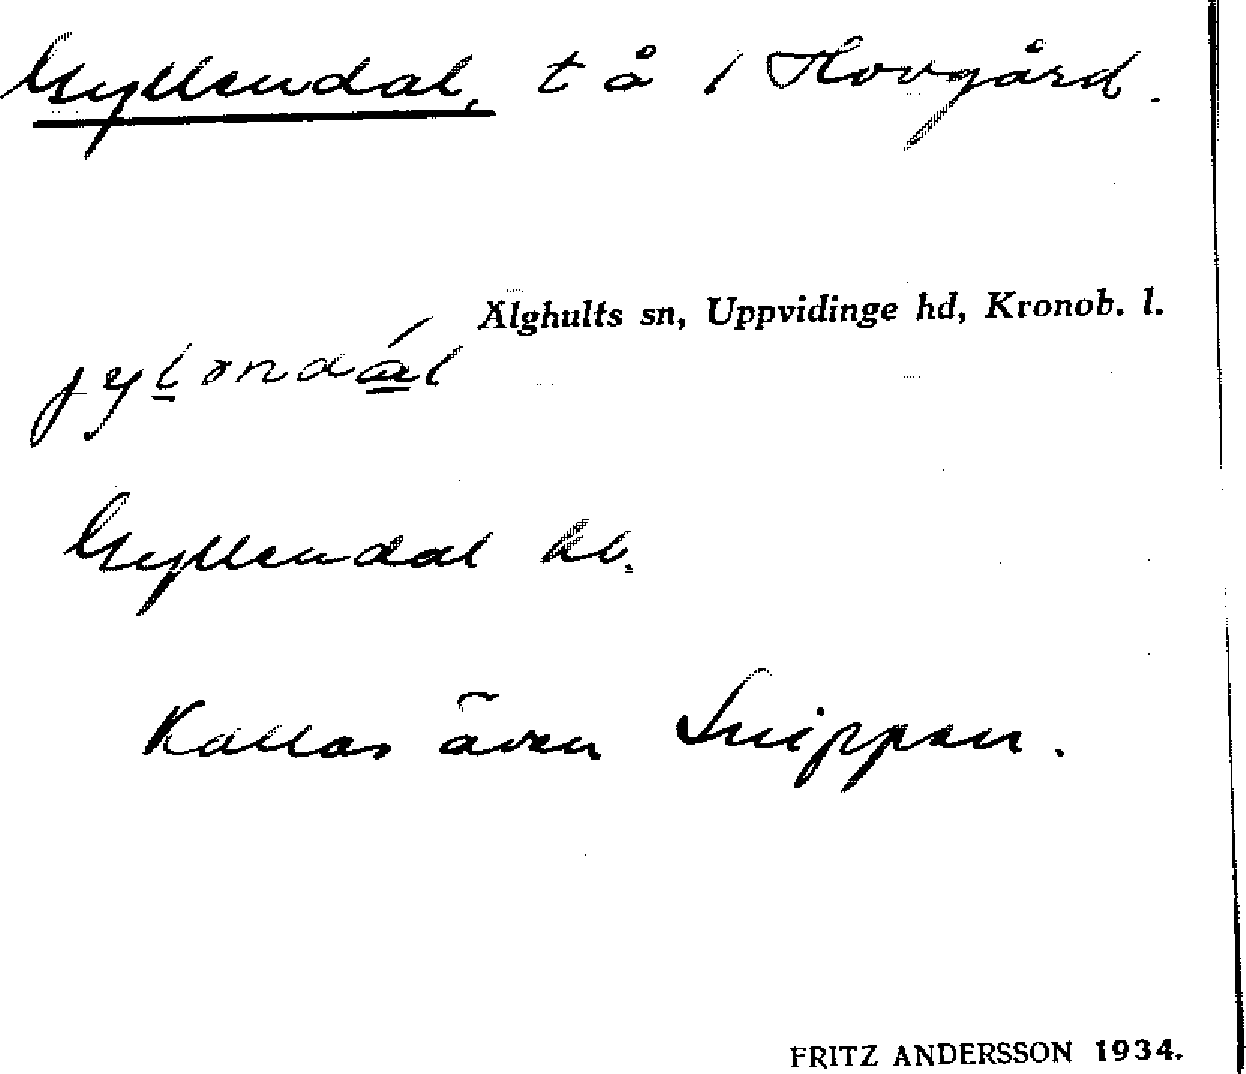 Gyllendal, t å 1 Hovgård.
Älghults sn, Uppvidinge hd, Kronob. l.
Gyllendal hl.
Kallas även Snippen.
FRITZ ANDERSSON 1934.